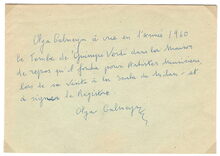 Olga Calneyer a vu en l'année 1960
la Tombe de Giuseppe Verdi dans la Maison
de repos qu'il fonda pour Artistes Musiciens,
lors de sa visite à la Scala de Milan - et
a signé le Registre.
Olga